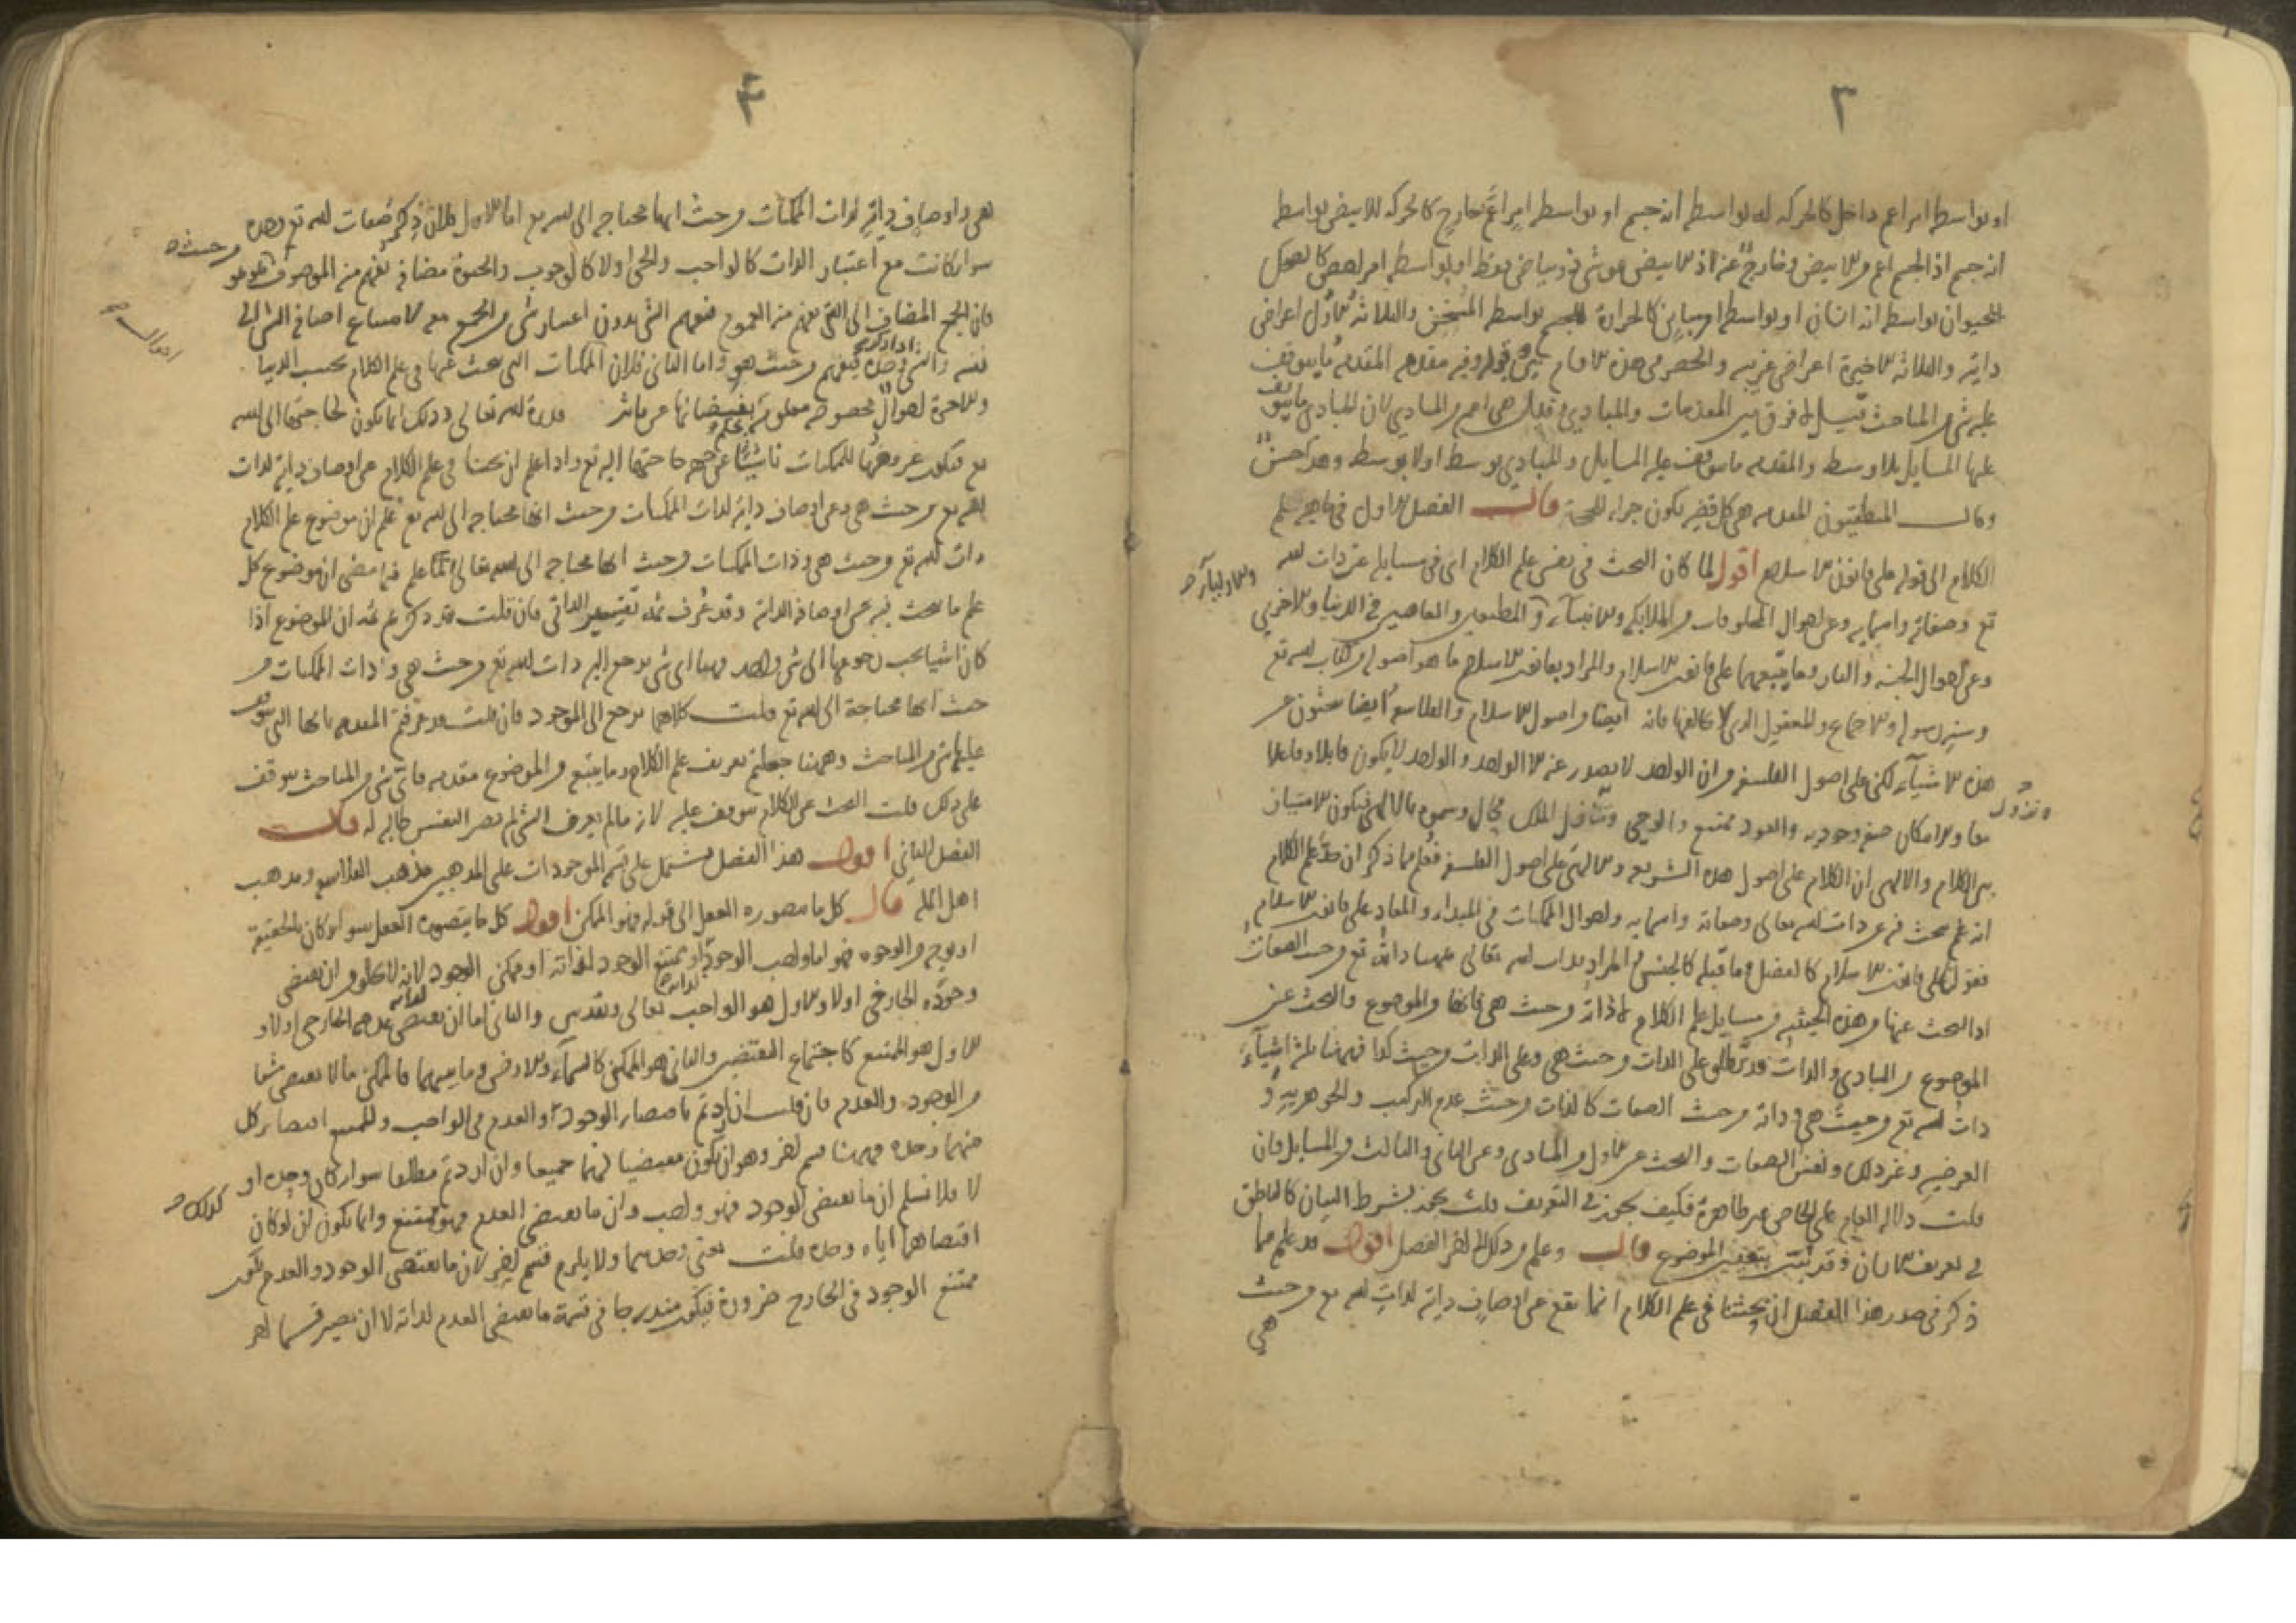 ٣
او بواسطه امر اعم داخل كالحركه له بواسطه انه جسم او بواسطه امر اعم خارج كالحركه للابيض بواسطه
انه جسم اذ الجسم اعم من الابيض وخارج عنه اذ الابيض هو شى ذو بياض فقط او بواسطه امر اخص كالضحك
للحيوان بواسطه انه انسان او بواسطه امر مباين كالحرارة للجسم بواسطه المسخن والثلاثه الاول اعراض
ذاتيه والثلاثه الاخيرة اعراض غريبه والحصر فى هذه الاقسام قوله وفيه مقدمه المقدمه ما يتوقف
عليه شى من المباحث قيل لا فرق بين المقدمات والمبادى وقيل هى اعم من المبادى لان المبادى ما يتوقف
عليها المسايل بلا وسط والمقدمه ما يتوقف عليه المسايل والمبادى بوسط او لا بوسط وهذا حسن
وقال المنطقيون المقدمه هى كل قضيه تكون جزء للحجة قال الفصل الاول فى ماهيه علم
الكلام الى قوله على قانون الاسلام اقول لما كان البحث فى نفس علم الكلام اى فى مسايله عن ذات الله
والاوليآء
تع وصفاته واسمايه وعن احوال المخلوقات من الملايكه والانبيآء والمطيعين والعاصين فى الدنيا والاخرى
وعن احوال الجنه والنار وما يتبعهما على قانون الاسلام والمراد بقانون الاسلام ما هو اصوله من كتاب الله تع
وسنه رسوله والاجماع والمعقول الذى لا يخالفها فانه ايضا من اصول الاسلام والفلاسفه ايضا يبحثون عن
هذه الاشيآء لكن على اصول الفلسفه من ان الواحد لا يصدر عنه الا الواحد والواحد لا يكون قابلا وفاعلا
ونزول
معا والامكان صفه وجوديه والعود ممتنع والوحى الملك محال وسموه بالالهى فيكون الامتياز
بين الكلام والالهى ان الكلام على اصول هذه الشريعه والالهى على اصول الفلسفه فعلم مما ذكر ان حد علم الكلام
انه علم يبحث فيه عن ذات الله تعالى وصفاته واسمايه واحوال الممكنات فى المبداء والمعاد على قانون الاسلام
فقوله على قانون الاسلام كالفصل وما قبله كالجنس والمراد بذات الله تعالى ههنا ذاته تع من حيث الصفات
اذ البحث عنها من هذه الحيثيه من مسايل علم الكلام لا ذاته من حيث هى فانها من الموضوع والبحث عن
الموضوع من المبادى والذات قد تطلق على الذات من حيث هى وعلى الذات من حيث كذا فههنا ثلثة اشيآء
ذات الله تع من حيث هى وذاته من حيث الصفات كالذات من حيث عدم التركيب والجوهريه و
العرضيه وغير ذلك ونفس الصفات والبحث عن الاول من المبادى وعن الثانى والثالث من المسايل فان
قلت دلاله العام على الخاص غير ظاهرة فكيف يجوز فى التعريف قلت يجوز بشرط البيان كالناطق
فى تعريف الانسان وقد بتفسير الموضوع قال وعلم من ذلك الى اخر الفصل اقول قد علم مما
ذكر فى صدر هذا الفصل ان بحثنا فى علم الكلام انما يقع عن اوصاف ذاتيه لذات الله تع من حيث
هى
۴
هى واوصاف ذاتيه لذات الممكنات من حيث انها محتاجه الى الله تع اما الاول فلان ذكر صفات الله تع وهذه
من حيث
سواء كانت مع اعتبار الذات كالواجب والحى او لا كالوجوب والحيوة مضافه تفهم من الموصوف هو هو
فان الجمع المضاف الى الشى يفهم منه العموم فيفهم الشى بدون اعتبار شى من الجميع معه لامتناع اضافه الشى الى
احوال
نفسه والشى وحده يفهم من حيث هو واما الثانى فلان الممكنات التى يبحث عنها فى علم الكلام بحسب الدنيا
والاخرة احوال مخصوصه معلومة فيضانها عن تاثير قدرة الله تعالى وذلك انما يكون لحاجتها الى الله
تع فيكون عروضها للممكنات ناشيا عن جهه حاجتها اليه تع واذا علم ان بحثنا فى علم الكلام عن اوصاف ذاتيه لذات
الله تع من حيث هى وعن اوصاف ذاتيه لذات الممكنات من حيث انها محتاجه الى الله تع علم ان موضوع علم الكلام
ذات الله تع من حيث هى وذات الممكنات من حيث انها محتاجه الى الله تعالى لما علم فيما مضى ان موضوع كل
علم ما يبحث فيه عن اوصافه الذاتية وقد عُرف ثمه تفسير الذاتى فان قلت قد ذكرتم ثمه ان الموضوع اذا
كان اشيا يجب رجوعها الى شى واحد فههنا اى شى يرجع اليه ذات الله تع من حيث هى وذات الممكنات من
حيث انها محتاجة الى الله تع قلت كلاهما يرجع الى الموجود فان قلت قد عرفتم المقدمه بانها التى يتوقف
عليها شى من المباحث وههنا جعلتم تعريف علم الكلام وما يتبعه من الموضوع مقدمه فاى شى من المباحث يتوقف
على ذلك قلت البحث عن الكلام يتوقف عليه لانه ما لم يعرف الشى لم تصر النفس طالبه له قال
الفصل الثانى اقول هذا الفصل يشتمل على تقسيم الموجودات على المذهبين مذهب الفلاسفه ومذهب
اهل المله قال كل ما يتصوره العقل الى قوله فهو الممكن اقول كل ما يتصوره العقل سواء كان بالحقيقة
او بوجه من الوجوه فهو اما واجب الوجود او ممتنع الوجود لذاته او ممكن الوجود لانه لا يخلو من ان يقتضى
لذاته
وجوده الخارجى او لا والاول هو الواجب تعالى وتقدس والثانى اما ان يقتضى لذاته عدمه الخارجى او لا و
الاول هو الممتنع كاجتماع النقيضين والثانى هو الممكن كالسمآء والارض وما بينهما فالممكن ما لا يقتضى شيا
من الوجود والعدم فان قلت ان اردتم باقتضاء الوجود والعدم فى الواجب والممتنع اقتضاء كل
منهما وحده فههنا قسم اخر وهو ان يكون مقتضيا لهما جميعا وان اردتم مطلقا سواء كان وحده او
لا فلا نسلم ان ما يقتضى الوجود فهو واجب وان ما يقتضى العدم فهو ممتنع وانما يكون كذلك ان لو كان
كذلك
اقتضاهما اياه وحده قلت نعنى وحدهما ولا يلزم قسم اخر لان ما يقتضى الوجود والعدم يكون
ممتنع الوجود فى الخارج ضرورة فيكون مندرجا فى قسمة ما يقتضى العدم لذاته لا ان يصير قسما اخر